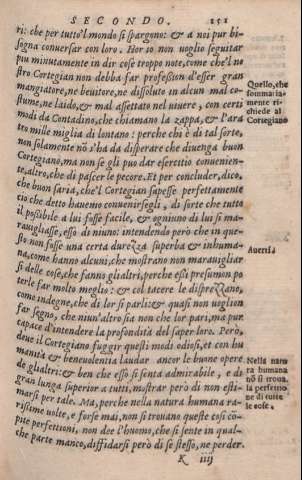 SECONDO. 251
ri: che per tutto'l mondo si spargono: & a noi pur bi-
sogna conuersar con loro. Hor io non uoglio seguitar
piu minutamente in dir cose troppo note, come che'l no
stro Cortegian non debba far profession d'esser gran
mangiatore, ne beuitore, ne dissoluto in alcun mal co-
stume, ne laido, & mal assettato nel uiuere, con certi
modi da Contadino, che chiamano la zappa, & l'ara
tro mille miglia di lontano: perche chi è di tal sorte,
non solamente nō s'ha da disperar che diuenga buon
Cortegiano, ma non se gli puo dar esercitio conuenien-
te, altro, che di pascer le pecore. Et per concluder, dico,
che buon saria, che'l Cortegian sapesse perfettamente
cio che detto hauemo conuenirsegli, di sorte che tutto
il possibile a lui fosse facile, & ogniuno di lui si ma-
rauigliasse, esso di niuno: intendendo però che in que-
sto non fosse una certa durezza superba & inhuma-
na, come hanno alcuni, che mostrano non marauigliar
si delle cose, che fanno gli altri, perche essi presumon po
terle far molto meglio: & col tacere le disprezzano,
come indegne, che di lor si parli: & quasi non uoglion
far segno, che niun'altro sia non che lor pari, ma pur
capace d'intendere la profondità del saper loro. Però,
deue il Cortegiano fuggir questi modi odiosi, et con hu
manità & beneuolentia laudar ancor le buone opere
de gli altri: & ben che esso si senta admirabile, e di
gran lunga superior a tutti, mostrar però di non esti-
marsi per tale. Ma, perche nella natura humana ra-
rissime uolte, e forse mai, non si trouano queste cosi cō-
pite perfettioni, non dee l'huomo, che si sente in qual-
che parte manco, diffidarsi però di se stesso, ne perder
K iiij
Quello, che
somma‍ria-
mente ri-
chiede al
Cortegiano
Auerti
Nella natu
ra humana
nō si troua
la perfettio
ne di tutte
le cose.